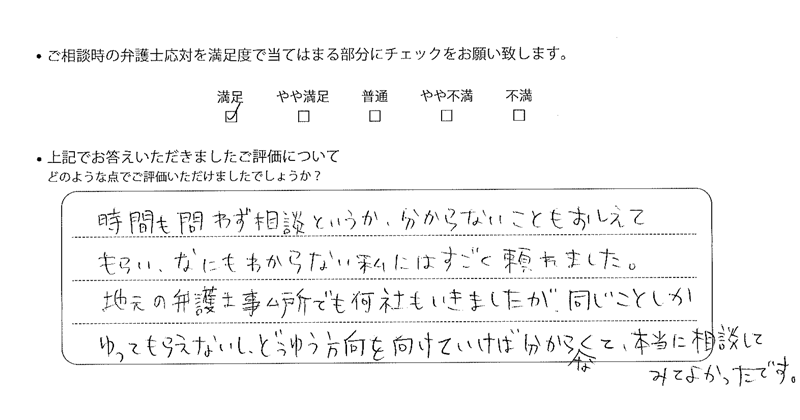 ・ご相談時の弁護士応対を満足度で当てはまる部分にチェックをお願い致します。
満足 やや満足 普通 やや不満 不満
・上記でお答えいただきましたご評価について
どのような点でご評価いただけましたでしょうか？
時間も問わず相談というか、分からないこともおしえて
もらい、なにもわからない私にはすごく頼れました。
地元の弁護士事ム所でも何社もいきましたが、同じことしか
ゆってもらえないし、どうゆう方向を向けていけば分からなくて、本当に相談して
みてよかったです。